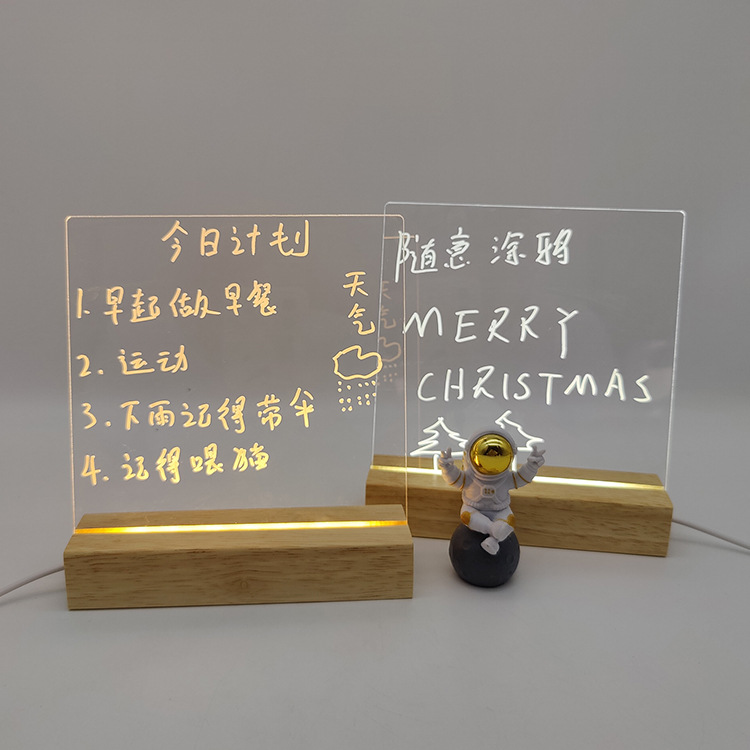 今日计划
1.早起做早餐
2.运动
3.下雨记得带伞
4.记得喂猫
天气
随意涂鸦
MERRY
CHRISTMAS